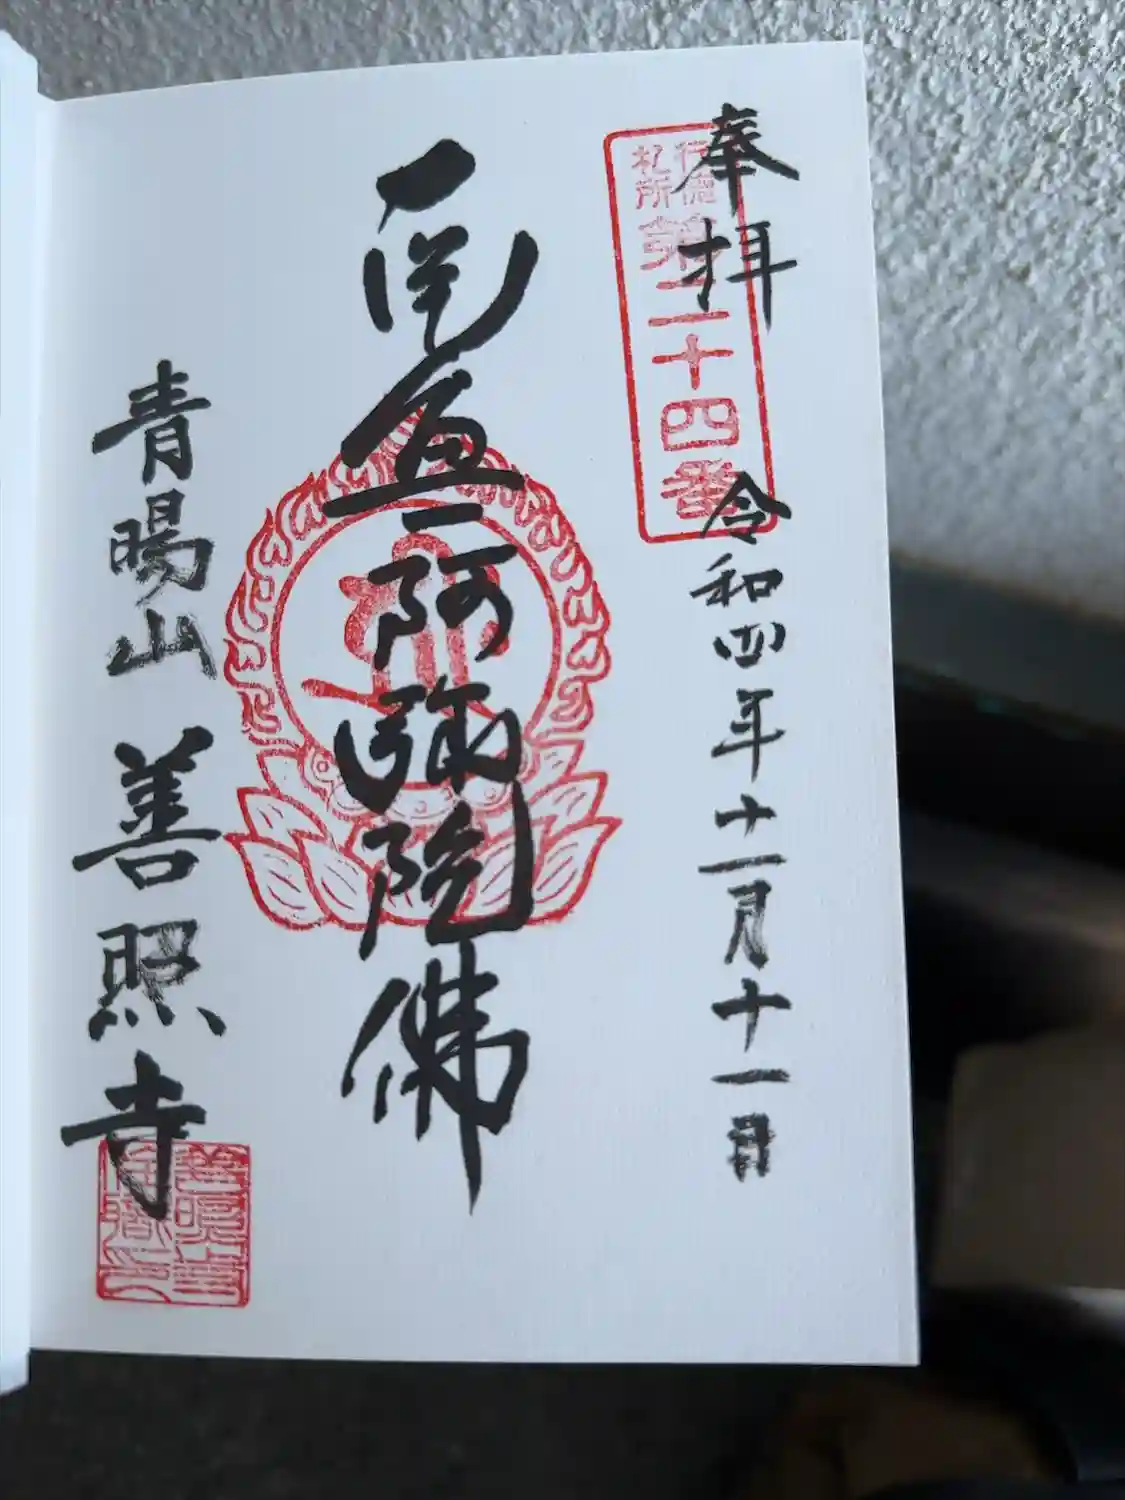 奉拝
令和四年十一月十一日
行徳
札所
第二十四番
南無阿弥陀佛
青暘山 善照寺